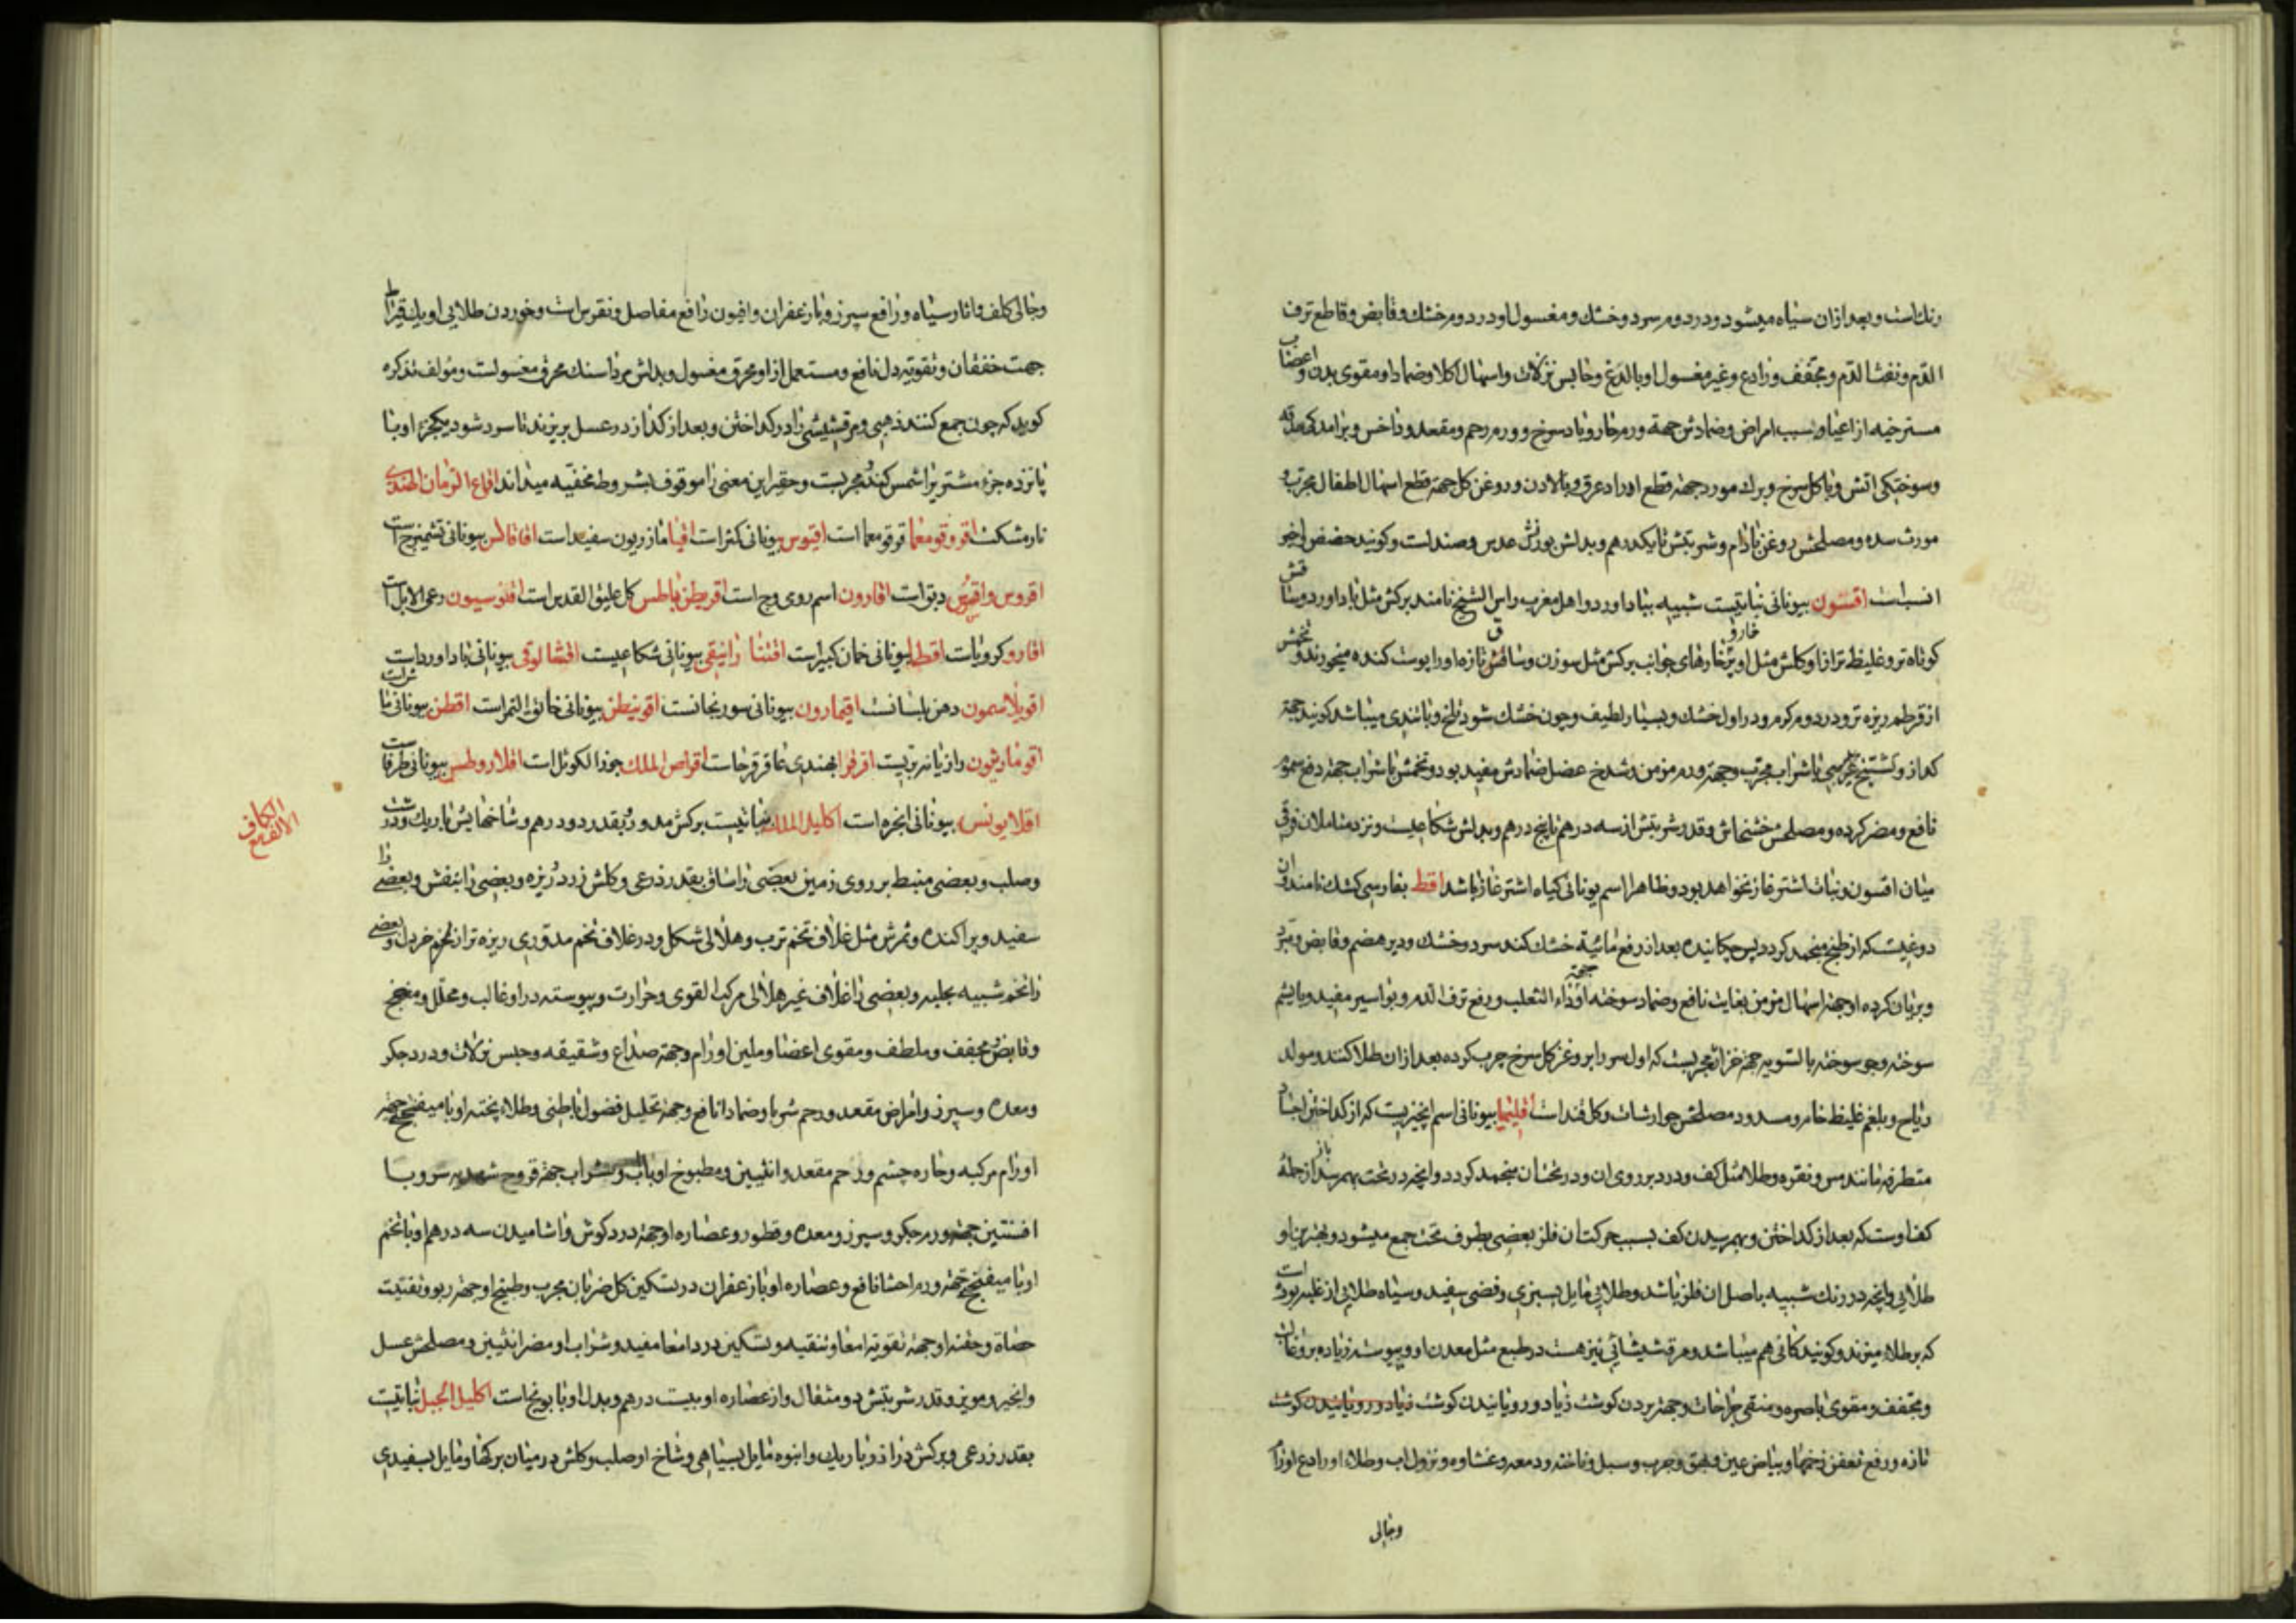 رنك است و بعد از ان سیاه میشود و در دوم سرد و خشك و مغسول او در دوم خشك و قابض و قاطع نزف
الدم و نفث الدم و مجفف و رادع و غیر مغسول او با لذع و حابس نزلات و اسهال اکلا و ضمادا و مقوی بدن و اعضاء
مسترخیه از اعیا و بسبب امراض و ضمادش جهة ورم حار و باد سرخ و ورم رحم و مقعد و داخس و برامدکی حدقه
و سوختکی اتش و با کل سرخ و برك مورد جهة قطع ادرار عرق و با لادن و روغن کل جهة قطع اسهال اطفال مجرب و
مورث سده و مصلحش روغن بادام و شربتش تا یکدرهم و بدلش بوزنش عدس و صندلست و کویند حضض اخیر
انسبست اقسون بیونانی نباتیست شبیه بباداورد و اهل مغرب راس الشیخ نامند برکش مثل باداورد و ساقش
کوتاه تر و غلیظ تر از او و کلش مثل او و پرخار و خارهای جوانب برکش مثل سوزن و ساقش تازه او را پوست کنده میخورند و تخمش
از قرطم ریزه تر و در دوم کرم و در اول خشك و بسیار لطیف و چون خشك شود تلخ و با تندی میباشد کویند جهة
کزاز و تشنج عرسی با شراب مجرب و جهة ورم مزمن و شدخ عضل ضمادش مفید بود و تخمش با شراب جهة دفع سموم
نافع و مضر کرده و مصلحش خشخاش و قدر شربتش از سه درهم تا پنج درهم و بدلش شکاعیست و نزد متاملان فرقی
میان اقسون و نبات اشترغاز نخواهد بود و ظاهرا اسم یونانی کیاه اشترغاز باشد اقط بفارسی کشك نامند و ان
دوغیست که از طبخ منجمد کردد پس چکانیده بعد از رفع مائیة خشك کنند سرد و خشك و دیر هضم و قابض و مبرد
و بریان کرده او جهة اسهال مزمن بغایت نافع و ضماد سوخته او جهة داء الثعلب و رفع نزف الدم و بواسیر مفید و با پشم
سوخته و جو سوخته بالسویه جهة خزاز مجربست که اول سر را بروغن کل سرخ چرب کرده بعد از ان طلا کنند و مولد
ریاح و بلغم غلیظ خام و مسدود مصلحش جوارشات و کلقند است اقلیمیا بیونانی اسم چیزیست که از کداختن اجساد
متطرقه مانند مس و نقره و طلا مثل کف و درد بر روی ان و در تحت ان منجمد کردد و انچه در تحت بهم رسد باز از جمله
کف اوست که بعد از کداختن و بهم رسیدن کف بسبب حرکت ان فلز بعضی بطرف تحت جمع میشود و بهترین او
طلائی و انچه در رنك شبیه باصل ان فلز باشد و طلائی مایل بسبزی و فضی سفید و سیاه طلائی از غلبه بورق است
که بر طلا میزنند و کویند کانی هم میباشد و مرقشیشائی نیز هست در طبع مثل معدن او و پیوسته زیاده بر و غالب
و مجفف و مقوی باصره و منقی جراحات و جهة بردن کوشت زیاد و رویانیدن کوشت زیاد و رویانیدن کوشت
تازه و رفع تعفن زخمها و بیاض عین و بهق و جرب و سبل و ناخنه و دمعه و غشاوه و نزول اب و طلاء او رادع اورام
وجالی
وجالی کلف و اثار سیاه و رافع سپرز و با زعفران و افیون رافع مفاصل و نقرس است و خوردن طلائی او یك قیراط
جهت خفقان و تقویة دل نافع و مستعمل از او محرق مغسول و بدلش مرداسنك محرق مغسولست و مؤلف تذکره
کوید که چون جمع کنند ذهبی و مرقشیشی را در کداختن و بعد از کداز در عسل بریزند تا سرد شود یکجزء او با
پانزده جزء مشتری را شمس کند و مجربست و حقیر این معنی را موقوف بشروط مخفیه میداند اقماع الرمان الهندی
نارمشکست اقروقومغما قرقومعما است اقیوس بیونانی کثرا است اقیا مازریون سفید است اقاقالس بیونانی تشمیزج است
اقروس و اقسوس دبق است اقارون اسم رومی وج است اقریطن باطس کل علیق القدس است اقنوسیون رعی الابل است
اقارو کرویاست اقطا بیونانی خمان کبیر است اقتنا رانیقی بیونانی شکاعیست اقشا لوقی بیونانی باداورد است
اقویلاسمون دهن بلسانست اقیمارون بیونانی سورنجانست اقونیطن بیونانی خانق النمر است اقطن بیونانی ماش است
اقومارثون رازیانه بریست اقرقرا بهندی عاقرقرحاست اقراص الملك جوز الکوثل است اقلاروطس بیونانی طرفاست
اقلایونس بیونانی انجره است اکلیل الملك نباتیست برکش مدور بقدر دودرهم و شاخهایش باریك و درشت
و صلب و بعضی منبسط بر روی زمین بعضی را ساق بقدر ذرعی و کلش زرد ریزه و بعضی را بنفش و بعضی را
سفید و پراکنده و ثمرش مثل غلاف تخم ترب و هلالی شکل و در غلاف تخم مدوری ریزه تر از تخم خردل و بعضی
را تخم شبیه بحلبه و بعضی را غلاف غیر هلالی مرکب القوی و حرارت و پیوسته در او غالب و محلل و منضج
و قابض و مجفف و ملطف و مقوی اعضا و ملین اورام و جهة صداع و شقیقه و حبس نزلات و درد جکر
و معده و سپرز و امراض مقعد و رحم شربا و ضمادا نافع و جهة تحلیل فضول باطنی و طلاء پخته او با میفختج جهة
اورام مرکبه و حاره چشم و رحم مقعد و انثیین و مطبوخ او باب و شراب جهة قروح شهدیه سر و با
افسنتین جهة ورم جکر و سپرز و معده و قطور و عصاره او جهة درد کوش و اشامیدن سه درهم او با تخم
او با میفختج جهة ورم احشا نافع و عصاره او با زعفران در تسکین کل ضربان مجرب و طبیخ او جهة ربو و تفتیت
حصاة و حقنه او جهة تقویة امعا و تنقیه و تسکین درد امعا مفید و شراب او مضر انثیین و مصلحش عسل
و انجیر و مویز و قدر شربتش دو مثقال و از عصاره او بیست درهم و بدل او بابونج است اکلیل الجبل نباتیست
بقدر ذرعی و برکش دراز و باریك و انبوه مایل بسیاهی و شاخ او صلب و کلش در میان برکها و مایل بسفیدی
الالف مع
الکاف